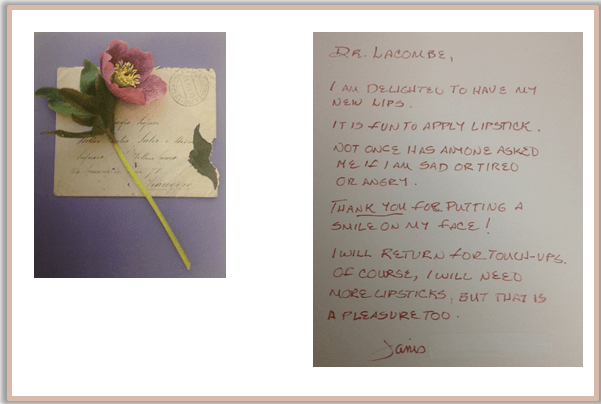 DR. LACOMBE,
I AM DELIGHTED TO HAVE MY
NEW LIPS.
IT IS FUN TO APPLY LIPSTICK.
NOT ONCE HAS ANYONE ASKED
ME IF I AM SAD OR TIRED
OR ANGRY.
THANK YOU FOR PUTTING A
SMILE ON MY FACE!
I WILL RETURN FOR TOUCH-UPS.
OF COURSE, I WILL NEED
MORE LIPSTICKS, BUT THAT IS
A PLEASURE TOO.
Janis